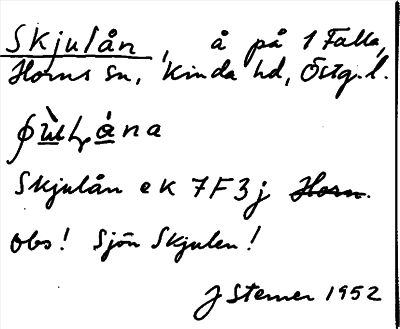 Skjulån, å på 1 Falla,
Horns sn, Kinda hd, Östg.l.
Skjulån ek 7F3j Horn.
Obs! Sjön Skjulen!
J Sterner 1952